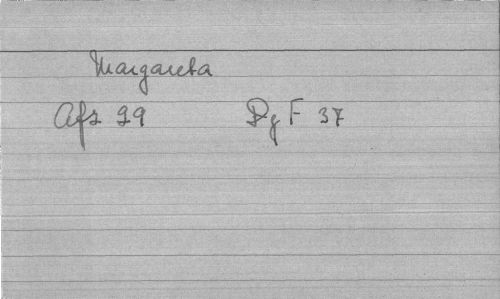 Margareta
Afz 99 Dy F 37